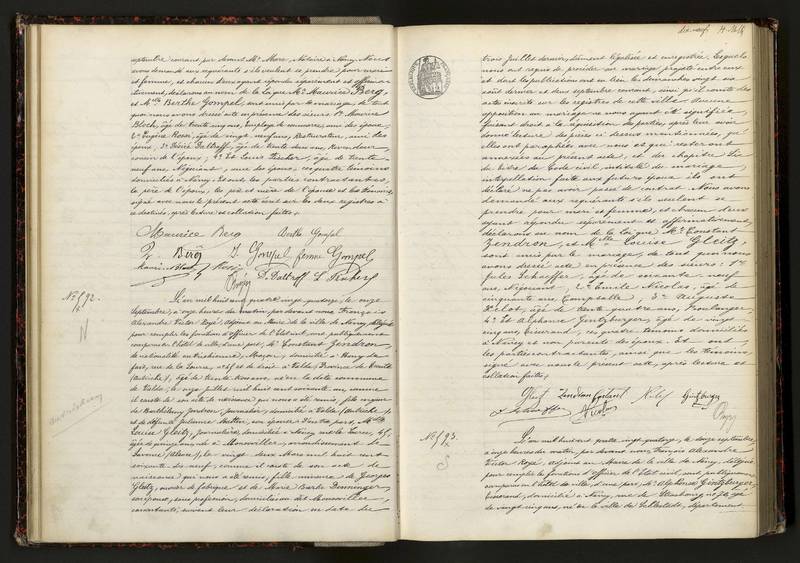 septembre courant, par devant Me Mare, Notaire à Nancy. Nous
avons demandé aux requérants s'ils veulent se prendre pour mari
et femme, et chacun d'eux ayant répondu séparément et affirma-
tivement, déclarons au nom de la loi que Mr Maurice Berg,
et Mlle Berthe Gompel, sont unis par le mariage, de tout
quoi nous avons dressé acte en présence des sieurs 1° Maurice
Bloch, âgé de trente ans, employé de commerce, ami des époux,
2° Eugène Rossi, âgé de vingt neuf ans, Restaurateur, ami des
époux, 3° Désiré Daltroff, âgé de trente deux ans, Revendeur,
cousin de l'époux; 4° Et Louis Fischer, âgé de trente
neuf ans, Négociant, ami des époux, ces quatre témoins
domiciliés à Nancy. Et ont, les parties contractantes,
le père de l'époux, les père et mère de l'épouse et les témoins,
signé avec nous le présent acte inscrit sur les deux registres à
ce destinés, après lecture et collation faites.
Maurice Berg Berthe Gompel
Berg J. Gompel femme Gompel
D. Daltroff
N° 592.
N
L'an mil huit cent quatre vingt quatorze, le onze
Septembre, à onze heures du matin, par devant nous François
Alexandre Victor Rogé, adjoint au Maire de la ville de Nancy, délégué
pour remplir les fonctions d'officier de l'Etat civil, ont publiquement
comparu en l'hôtel de ville, d'une part, Mr Constant Zendron,
de nationalité autrichienne, Maçon, domicilié à Nancy,
fait, rue de la Source, n° 45 et de droit à Valda (Province de Trente
(Autriche), âgé de trente trois ans, né en la dite commune
de Valda, le onze juillet mil huit cent soixante un, comme
il conste de son acte de naissance qui nous a été remis, fils majeur
de Barthélemy Zendron, journalier, domicilié à Valda (Autriche),
et de défunte Julienne
Louise Gleitz, journalière, domiciliée à Nancy, rue la Source, 45,
âgée de quinze ans, née à Monswiller, arrondissement de
Saverne (Alsace), le vingt deux Mars mil huit cent
soixante dix neuf, comme il conste de son acte de
naissance qui nous a été remis, fille mineure de Georges
Gleitz, ouvrier de fabrique et de Marie Barbe Denninger,
son épouse, sans profession, domiciliés à Monswiller,
consentants, suivant leur déclaration en date du
dix-neuf
trois Juillet dernier, dûment légalisée et enregistrée. Lesquels
nous ont requis de procéder au mariage projeté entre eux
et dont les publications ont eu lieu les dimanches vingt six
août dernier et deux septembre courant, ainsi qu'il conste des
actes inscrits sur les registres de cette ville. Aucune
opposition au mariage ne nous ayant été signifiée,
faisant droit à la réquisition des parties, après leur avoir
donné lecture des pièces ci dessus mentionnées, qu'
elles ont paraphées avec nous et qui resteront
annexées au présent acte, et du chapitre six
du titre du Code civil intitulé du mariage,
interpellation faite aux futurs époux, ils ont
déclaré ne pas avoir passé de contrat. Nous avons
demandé aux requérants s'ils veulent se
prendre pour mari et femme, et chacun d'eux
ayant répondu séparément et affirmativement,
déclarons au nom de la loi que Mr Constant
Zendron, et Mlle Louise Gleitz,
sont unis par le mariage, de tout quoi nous
avons dressé acte en présence des sieurs: 1°
Jules Schaeffer, âgé de soixante neuf
ans, Négociant; 2° Emile Nicolas, âgé de
cinquante ans, Comptable; 3° Auguste
Pelot, âgé de trente quatre ans, Boulanger
4° Et Alphonse Gintzburger, âgé de vingt
cinq ans, Tisserand, ces quatre témoins domiciliés
à Nancy et non parents des époux. Et ont
les parties contractantes, ainsi que les témoins,
signé avec nous le présent acte, après lecture et
collation faites.
Nicolas
N° 593.
S
L'an mil huit cent quatre vingt quatorze, le douze septembre,
à onze heures du matin, par devant nous, François Alexandre
Victor Rogé, adjoint au Maire de la ville de Nancy, délégué
pour remplir les fonctions d'officier de l'Etat civil, ont publiquement
comparu en l'hôtel de ville, d'une part, Mr Alphonse Gintzburger,
Tisserand, domicilié à Nancy, rue de Strasbourg, n° 76, âgé
de vingt cinq ans, né en la ville de Schlestadt, département